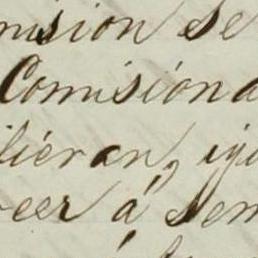 mision se
Comisiona
lieran, igu
eer á sem